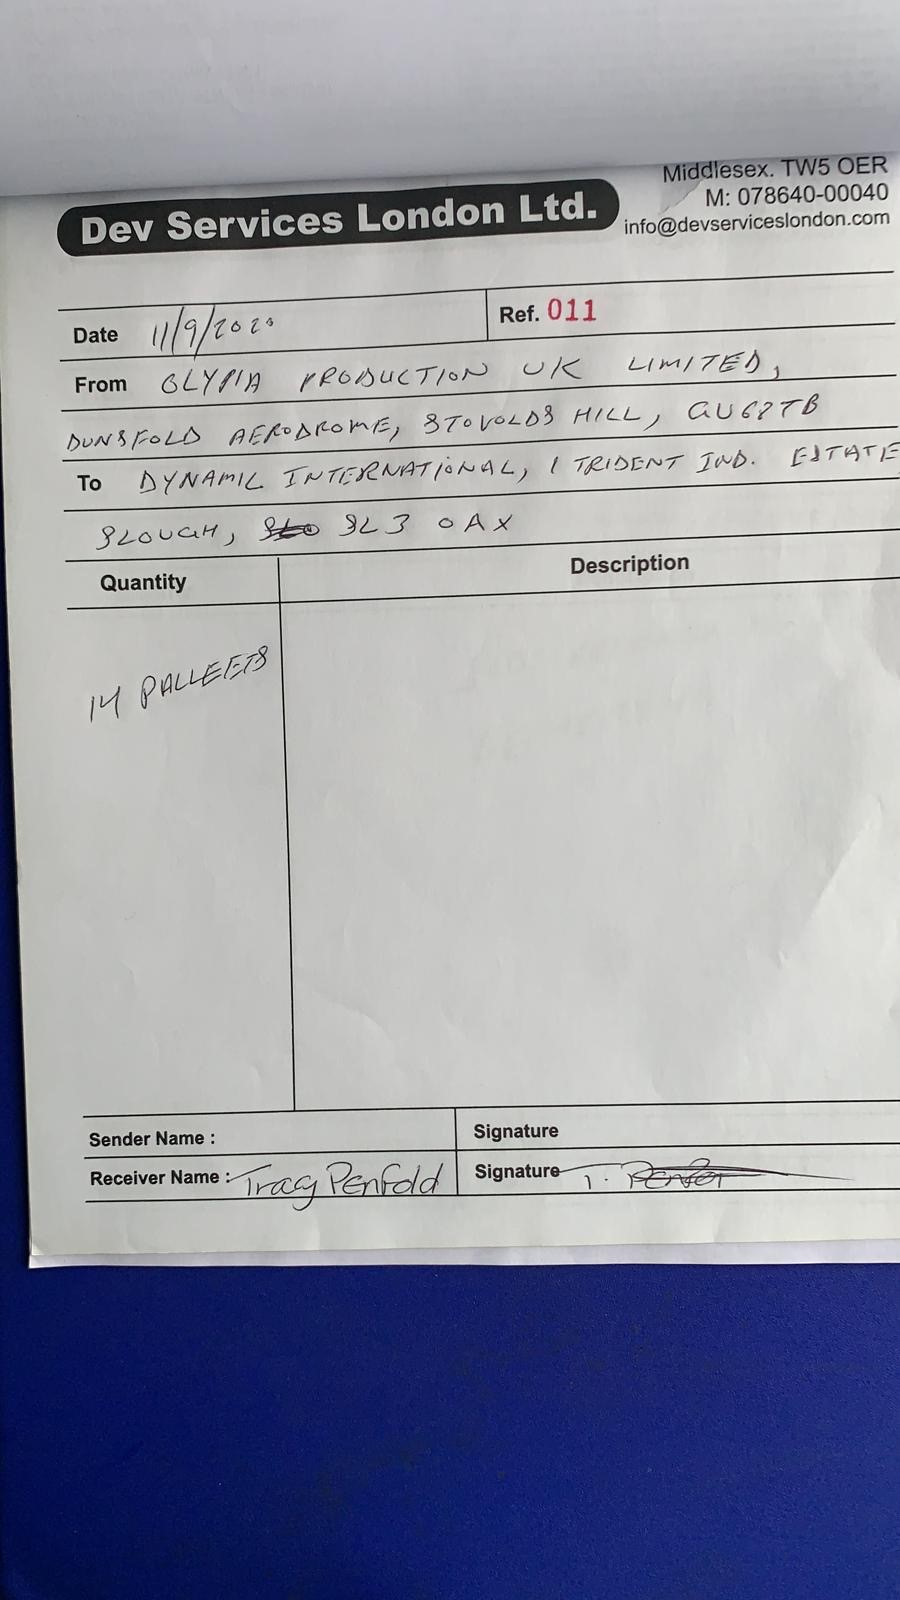 Middlesex. TW5 OER
M: 078640-00040
info@devserviceslondon.com
Dev Services London Ltd.
Date 11/9/2020
Ref. 011
From OLYPIA PRODUCTION UK LIMITED,
DUNSFOLD AERODROME, STOVOLDS HILL, GU68TB
To DYNAMIC INTERNATIONAL, 1 TRIDENT IND. ESTATE
SLOUGH, SL3 0AX
Quantity Description
14 PALLEETS
Sender Name :
Signature
Receiver Name : Tracy Penfold
Signature T. Penfol